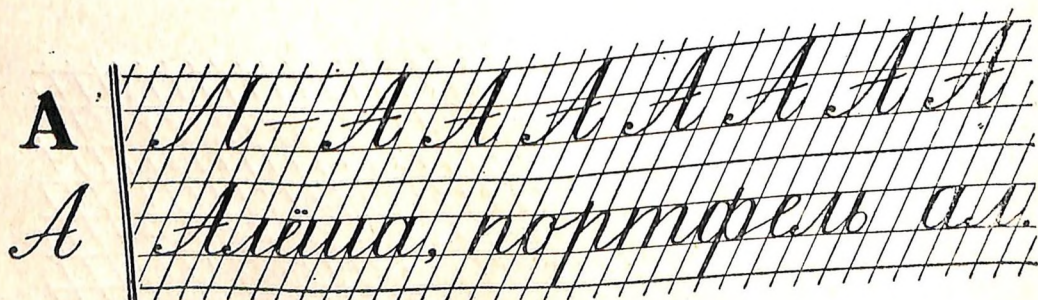 А Л – А А А А А А А
А Алёша, портфель ал.